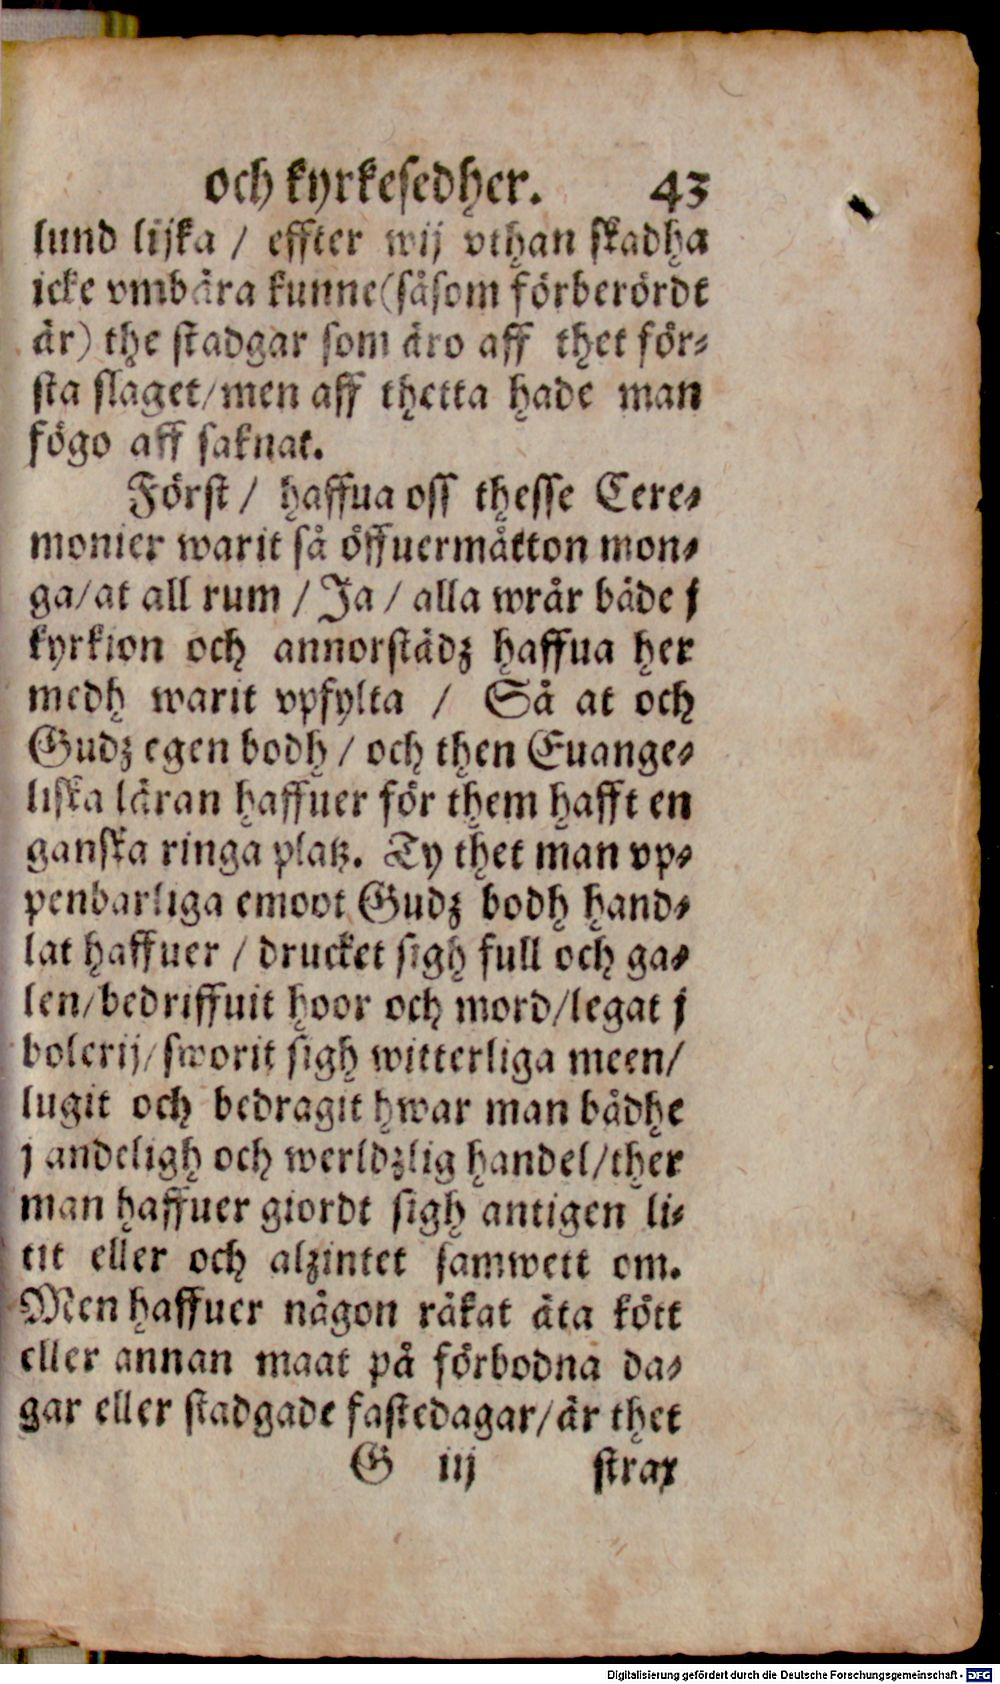 och kyrkesedher. 43
lund lijka / effter wij vthan skadha
icke vmbära kunne (såsom förberördt
är) the stadgar som äro aff thet för⸗
sta slaget/men aff thetta hade man
fögo aff saknat.
Först / haffua oss thesse Cere⸗
monier warit så öffuermåtton mon⸗
ga/at all rum / Ja / alla wrår både j
kyrkion och annorstädz haffua her
medh warit vpfylta / Så at och
Gudz egen bodh / och then Euange⸗
liska läran haffuer för them hafft en
ganska ringa platz. Ty thet man vp⸗
penbarliga emoot Gudz bodh hand⸗
lat haffuer / drucket sigh full och ga⸗
len/bedriffuit hoor och mord/legat j
bolerij/sworit sigh witterliga meen/
lugit och bedragit hwar man bådhe
j andeligh och werldzlig handel/ther
man haffuer giordt sigh antigen li⸗
tit eller och alzintet samwett om.
Men haffuer någon råkat äta kött
eller annan maat på förbodna da⸗
gar eller stadgade fastedagar/är thet
G iij strax
Digitalisierung gefördert durch die Deutsche Forschungsgemeinschaft - DFG